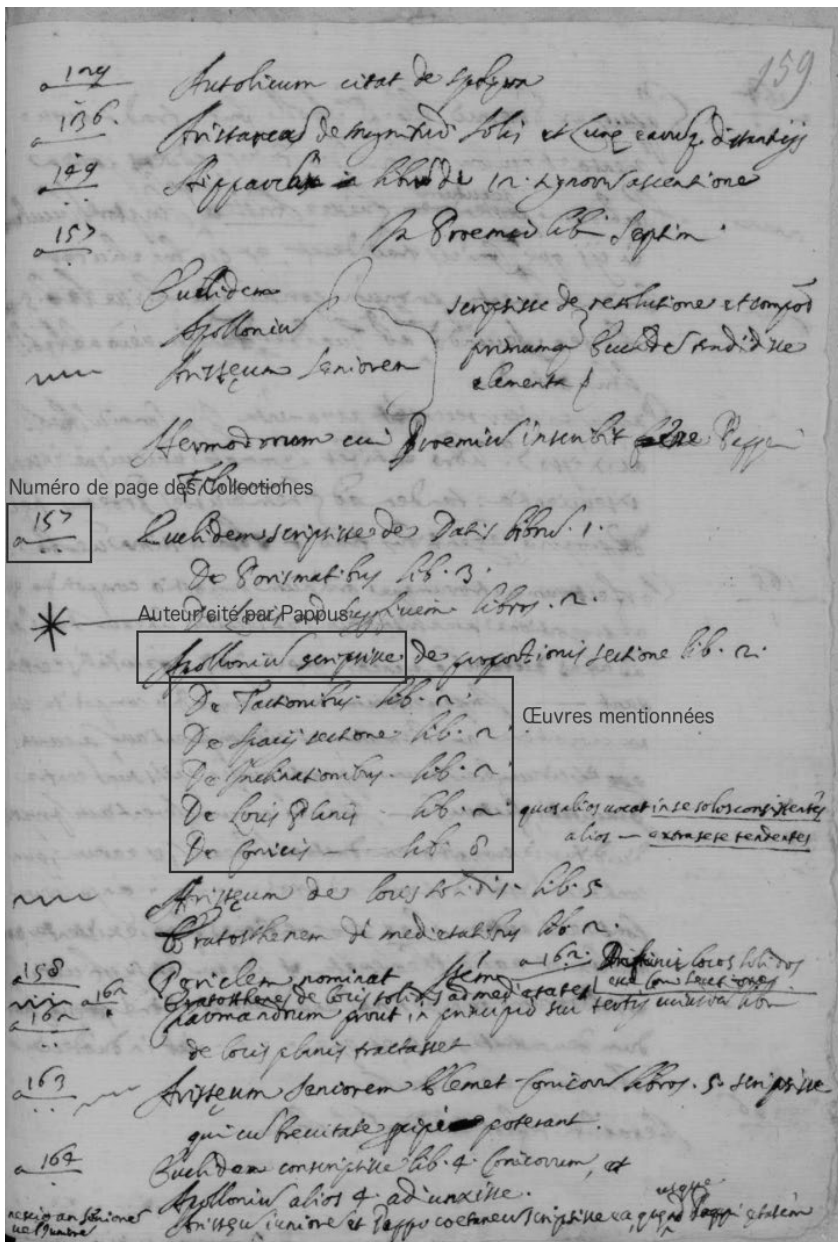 159
a 129 Autolicum citat de sphera
a 136. Aristarcus de magnitud solis et Lunę earuq. distantijs
a 149 Hipparchu libro de 12. signoru ascentione
a 157 In Proemio lib Septim.
Euclidem
Apolloniu
Aristęum Seniorem
scripsisse de resolutione et compod
primumq Euclide tradidisse
elementa
Hermodorum cui Proemiu inscribit Pappi
Numéro de page des Collectiones
a 157 Euclidem scripsisse de Datis libru. 1.
De Porismatibus lib. 3.
Auteur cité par Pappus
De Locis ad superficiem libros. 2.
Apolloniu scripsisse de proportionis sectione lib. 2.
De Tactionibus lib. 2.
De spacij sectione. lib. 2.
Œuvres mentionnées
De Inclinationibus. lib. 2
De Locis Planis — lib. 2 quos alios vocat in se solos consistentes
alios — extra sese tendentes
De Conicis — lib. 8
Aristęum de locis solidis. lib. 5
Eratosthenem di medietatibus lib 2.
a 158 Periclem nominat
a 162. locos solidos
esse coni sectiones
a 162 Eratosthenes de locis solidis ad medietates
a 162 Carmandrum prout in principio sui tertij
de locis planis tractasset
a 163 Aristęum Seniorem Elemet. Conicoru libros. 5. scripsisse
qui cu breuitate poterant.
a 164 Euclidem conscripsisse lib. 4. Conicorum, et
Apolloniu alios 4. adiunxisse.
nescio an seniore
uel Juniore
Aristeu iuniore et Pappo coetaneu scripsisse ea, usque Pappi etatem